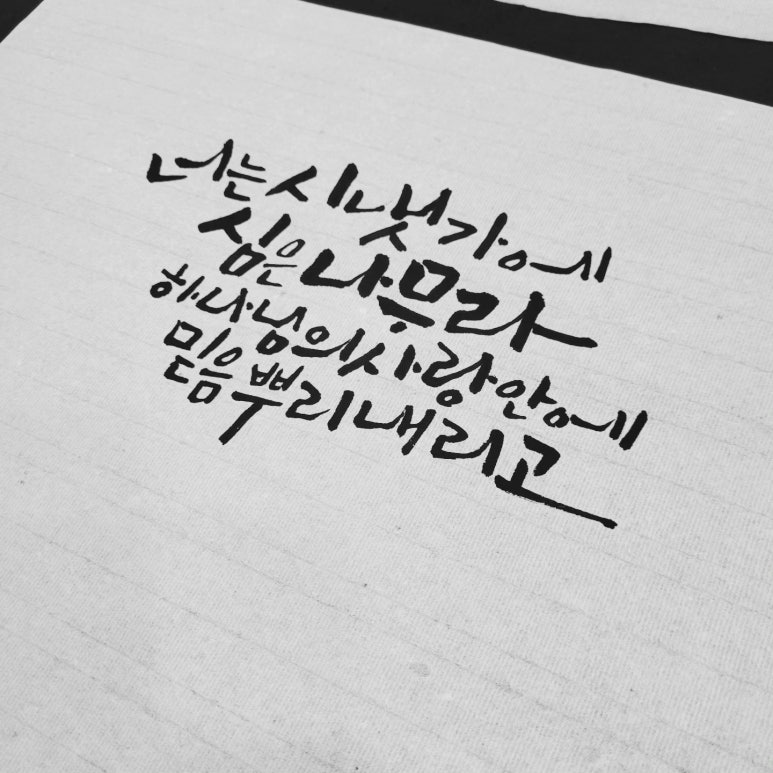 너는 시냇가에
심은 나무라
하나님의 사랑 안에
믿음 뿌리 내리고